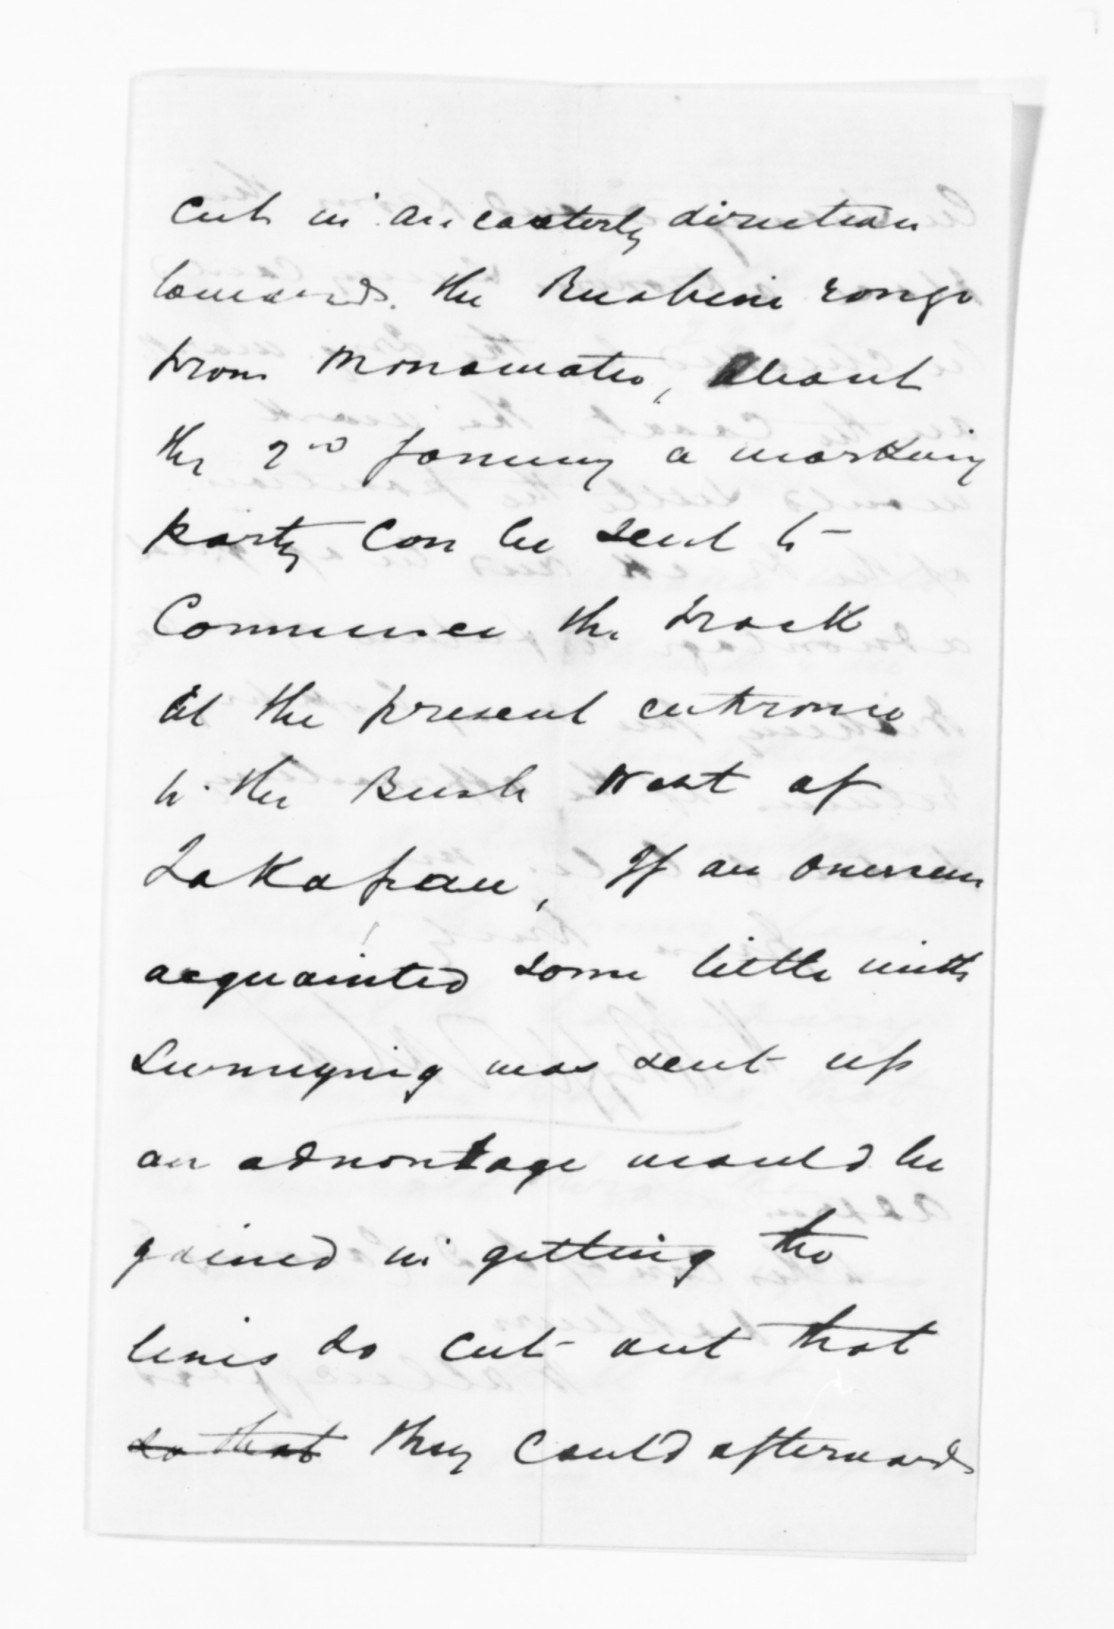 cut in an easterly direction
towards the Ruahine range
from Manawatu, About
the 2nd January a marking
party can be sent to
Commence the track
at the present entrance
to the Bush West of
Takapau, If an overseer
acquainted some little with
Surveying was sent up
an advantage would be
gained in getting the
lines so cut out that
so that they could afterwards